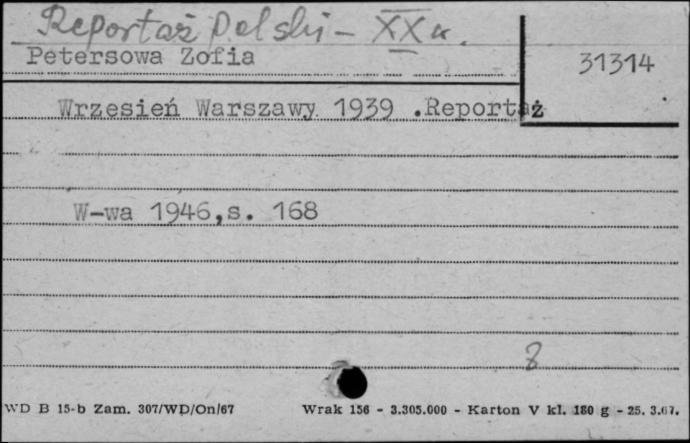 Reportaż Polski - XX w.
Petersowa Zofia
31314
Wrzesień Warszawy 1939 .Reportaż
W-wa 1946,s. 168
8
WD B 15-b Zam. 307/WD/On/67 Wrak 156 - 3.305.000 - Karton V kl. 180 g - 25. 3.67.